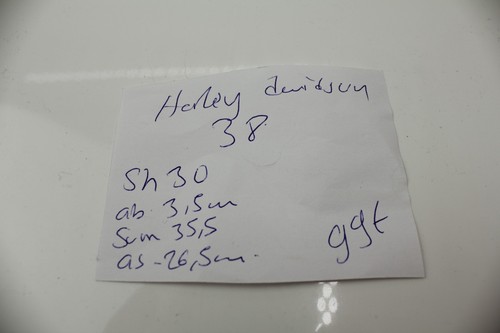 Harley davidson
38
Sh 30
ab 3,5cm
Scm 35,5
as - 26,5cm.
ggt